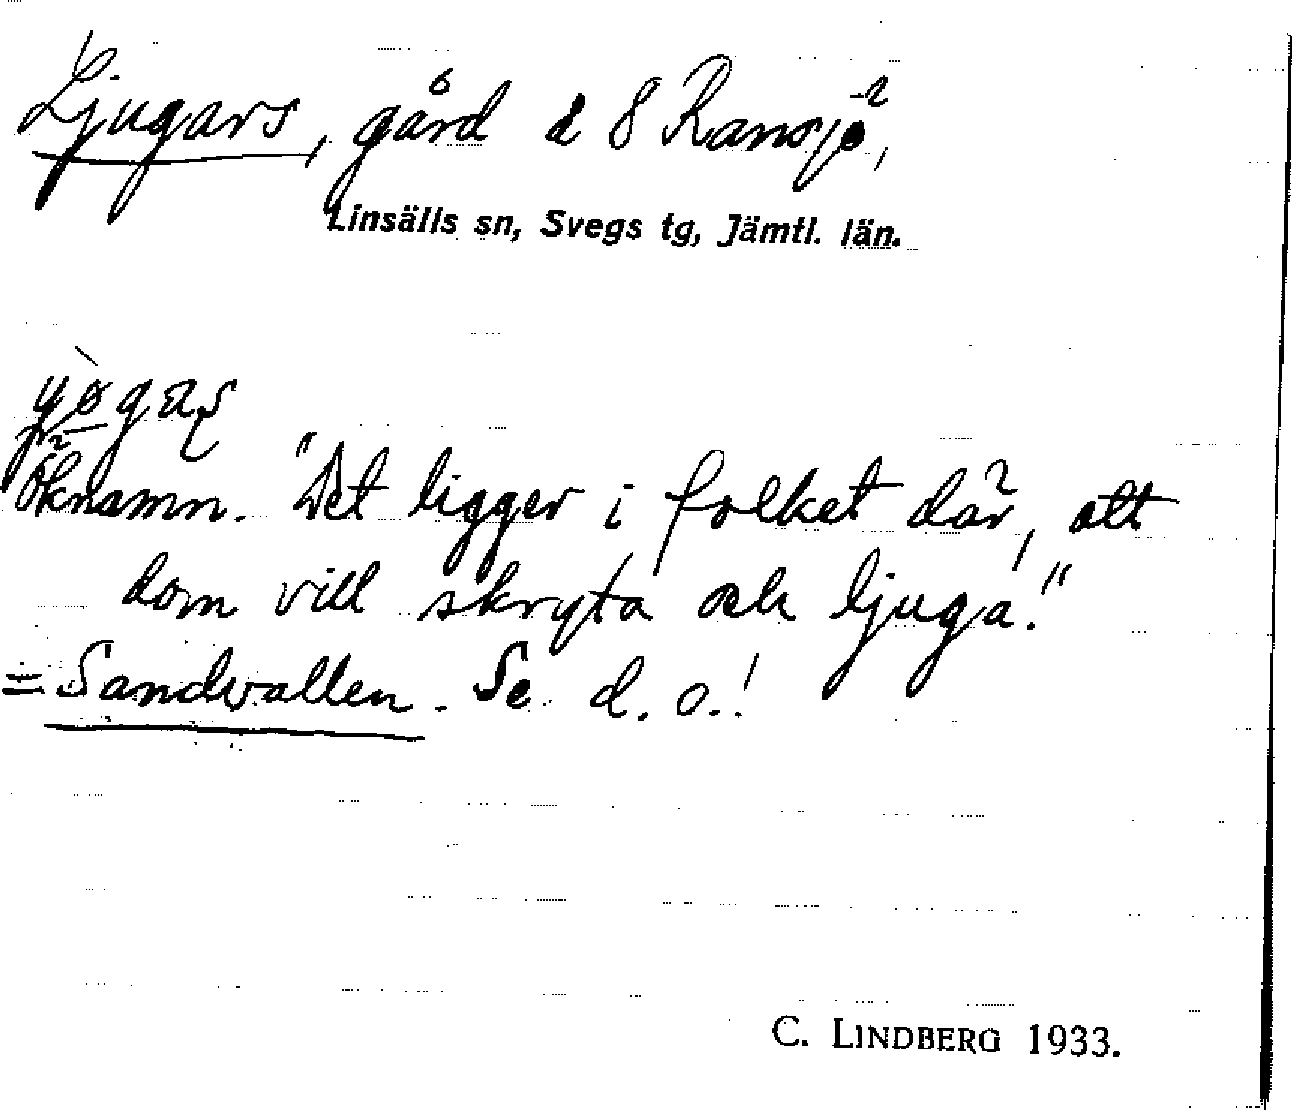 Ljugars, gård å 8 Ransjö,
Linsälls sn, Svegs tg, Jämtl. län.
öknamn. "Det ligger i folket där, att
dom vill skryta och ljuga!"
= Sandvallen. Se d. o.!
C. LINDBERG 1933.